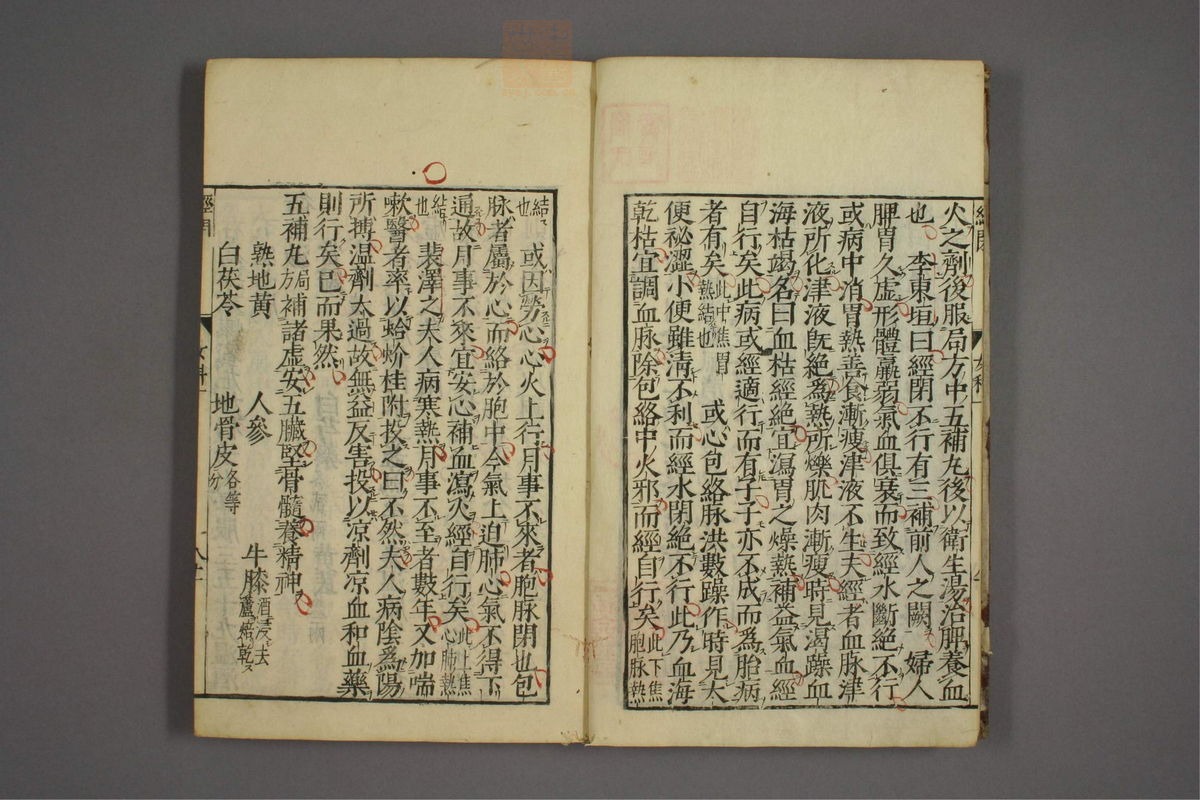 火之劑後服局方中五補丸後以衛生湯治脾養血
也　李東垣曰經閉不行有三補前人之闕　婦人
脾胃久虛形體羸弱氣血俱衰而致經水斷絕不行
或病中消胃熱善食漸瘦津液不生夫經者血脉津
液所化津液旣絕為熱所爍肌肉漸瘦時見渴躁血
海枯竭名曰血枯經絕宜瀉胃之燥熱補益氣血經
自行矣此病或經適行而有子子亦不成而為胎病
者有矣此中焦胃熱結也　或心包絡脉洪數躁作時見大
便祕澀小便雖淸不利而經水閉絕不行此乃血海
乾枯宜調血脉除包絡中火邪而經自行矣此下焦胞脉熱
結也　或因勞心心火上行月事不來者胞脉閉也包
脉者屬於心而絡於胞中今氣上迫肺心氣不得下
通故月事不來宜安心補血瀉火經自行矣此上焦心肺熱
結也　裴澤之夫人病寒熱月事不至者數年又加喘
嗽醫者率以蛤蚧桂附投之曰不然夫人病陰為陽
所搏溫劑太過故無益反害投以凉劑凉血和血藥
則行矣已而果然
五補丸局方補諸虛安五臟堅骨髓養精神
熟地黃　人參　牛膝酒浸去蘆焙乾
白茯苓　地骨皮各等分